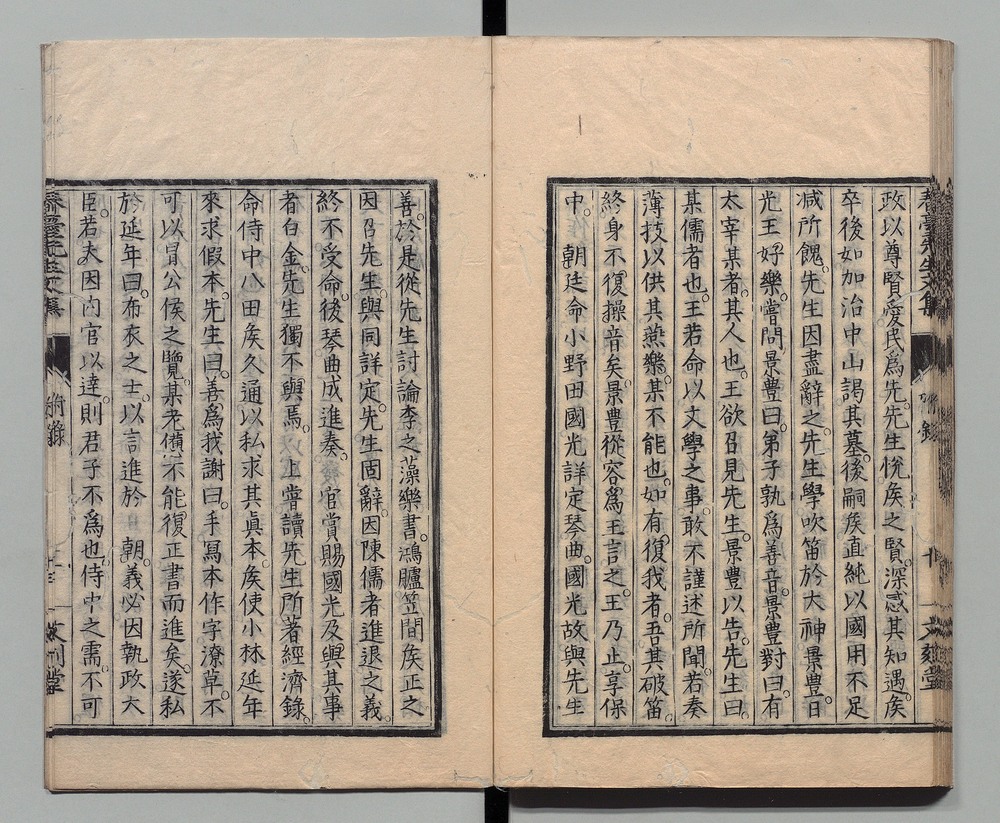 政以尊賢愛民爲先。先生悅矦之賢。深感其知遇。矦
卒後如加治中山謁其墓。後嗣矦直純以國用不足
減所餽。先生因盡辭之。先生學吹笛於大神景豊。日
光王好樂。嘗問景豊曰。弟子孰爲善音。景豊對曰有
太宰某者。其人也。王欲召見先生。景豊以告。先生曰。
某儒者也。王若命以文學之事。敢不謹述所聞。若奏
薄技以供其燕樂。某不能也。如有復我者。吾其破笛。
終身不復操音矣。景豊從容爲王言之。王乃止。享保
中。朝廷命小野田國光詳定琴曲。國光故與先生
善。於是從先生討論李之藻樂書。鴻臚笠間矦正之
因召先生。與同詳定。先生固辭。因陳儒者進退之義。
終不受命。後琴曲成進奏。官賞賜國光及與其事
者白金。先生獨不與焉。上嘗讀先生所著經濟錄。
命侍中八田矦久通以私求其眞本。矦使小林延年
來求假本。先生曰。善爲我謝曰。手寫本作字潦草。不
可以冒公侯之覽。某老憊不能復正書而進矣。遂私
於延年曰。布衣之士。以言進於朝。義必因執政大
臣。若夫因內官以達。則君子不爲也。侍中之需。不可
春臺先生文集
附錄